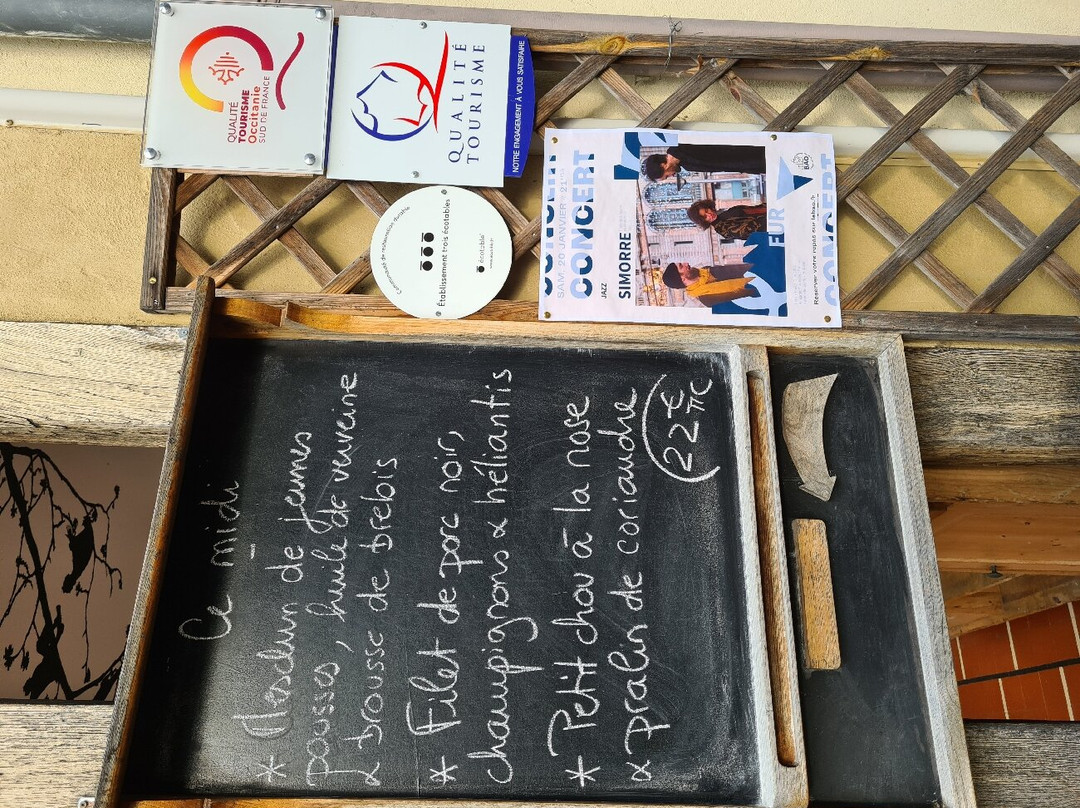 QUALITÉ
TOURISME
Occitanie
SUD DE FRANCE
QUALITÉ
TOURISME
NOTRE ENGAGEMENT À VOUS SATISFAIRE
Communauté de restauration durable
Établissement trois écotables
écotable
CONCERT
SAM. 20 JANVIER - 21H
CONCERT
JAZZ
SIMORRE
Ce midi
* Mesclun de jeunes
pousses, huile de verveine
& brousse de brebis
* Filet de porc noir,
champignons & héliantis
* Petit chou à la rose
& pralin de coriandre
22€
TTC